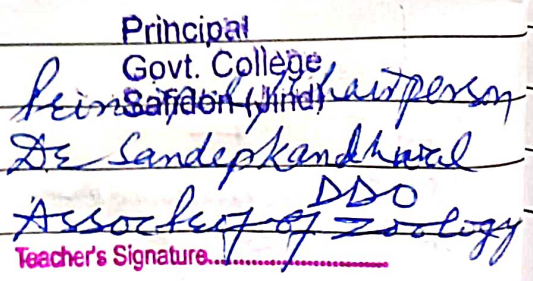 Principal
Govt. College
Safidon (Jind)
Principal / Chairperson
Dr Sandeep Kandhwal
DDO
of Zoology
Teacher's Signature........................